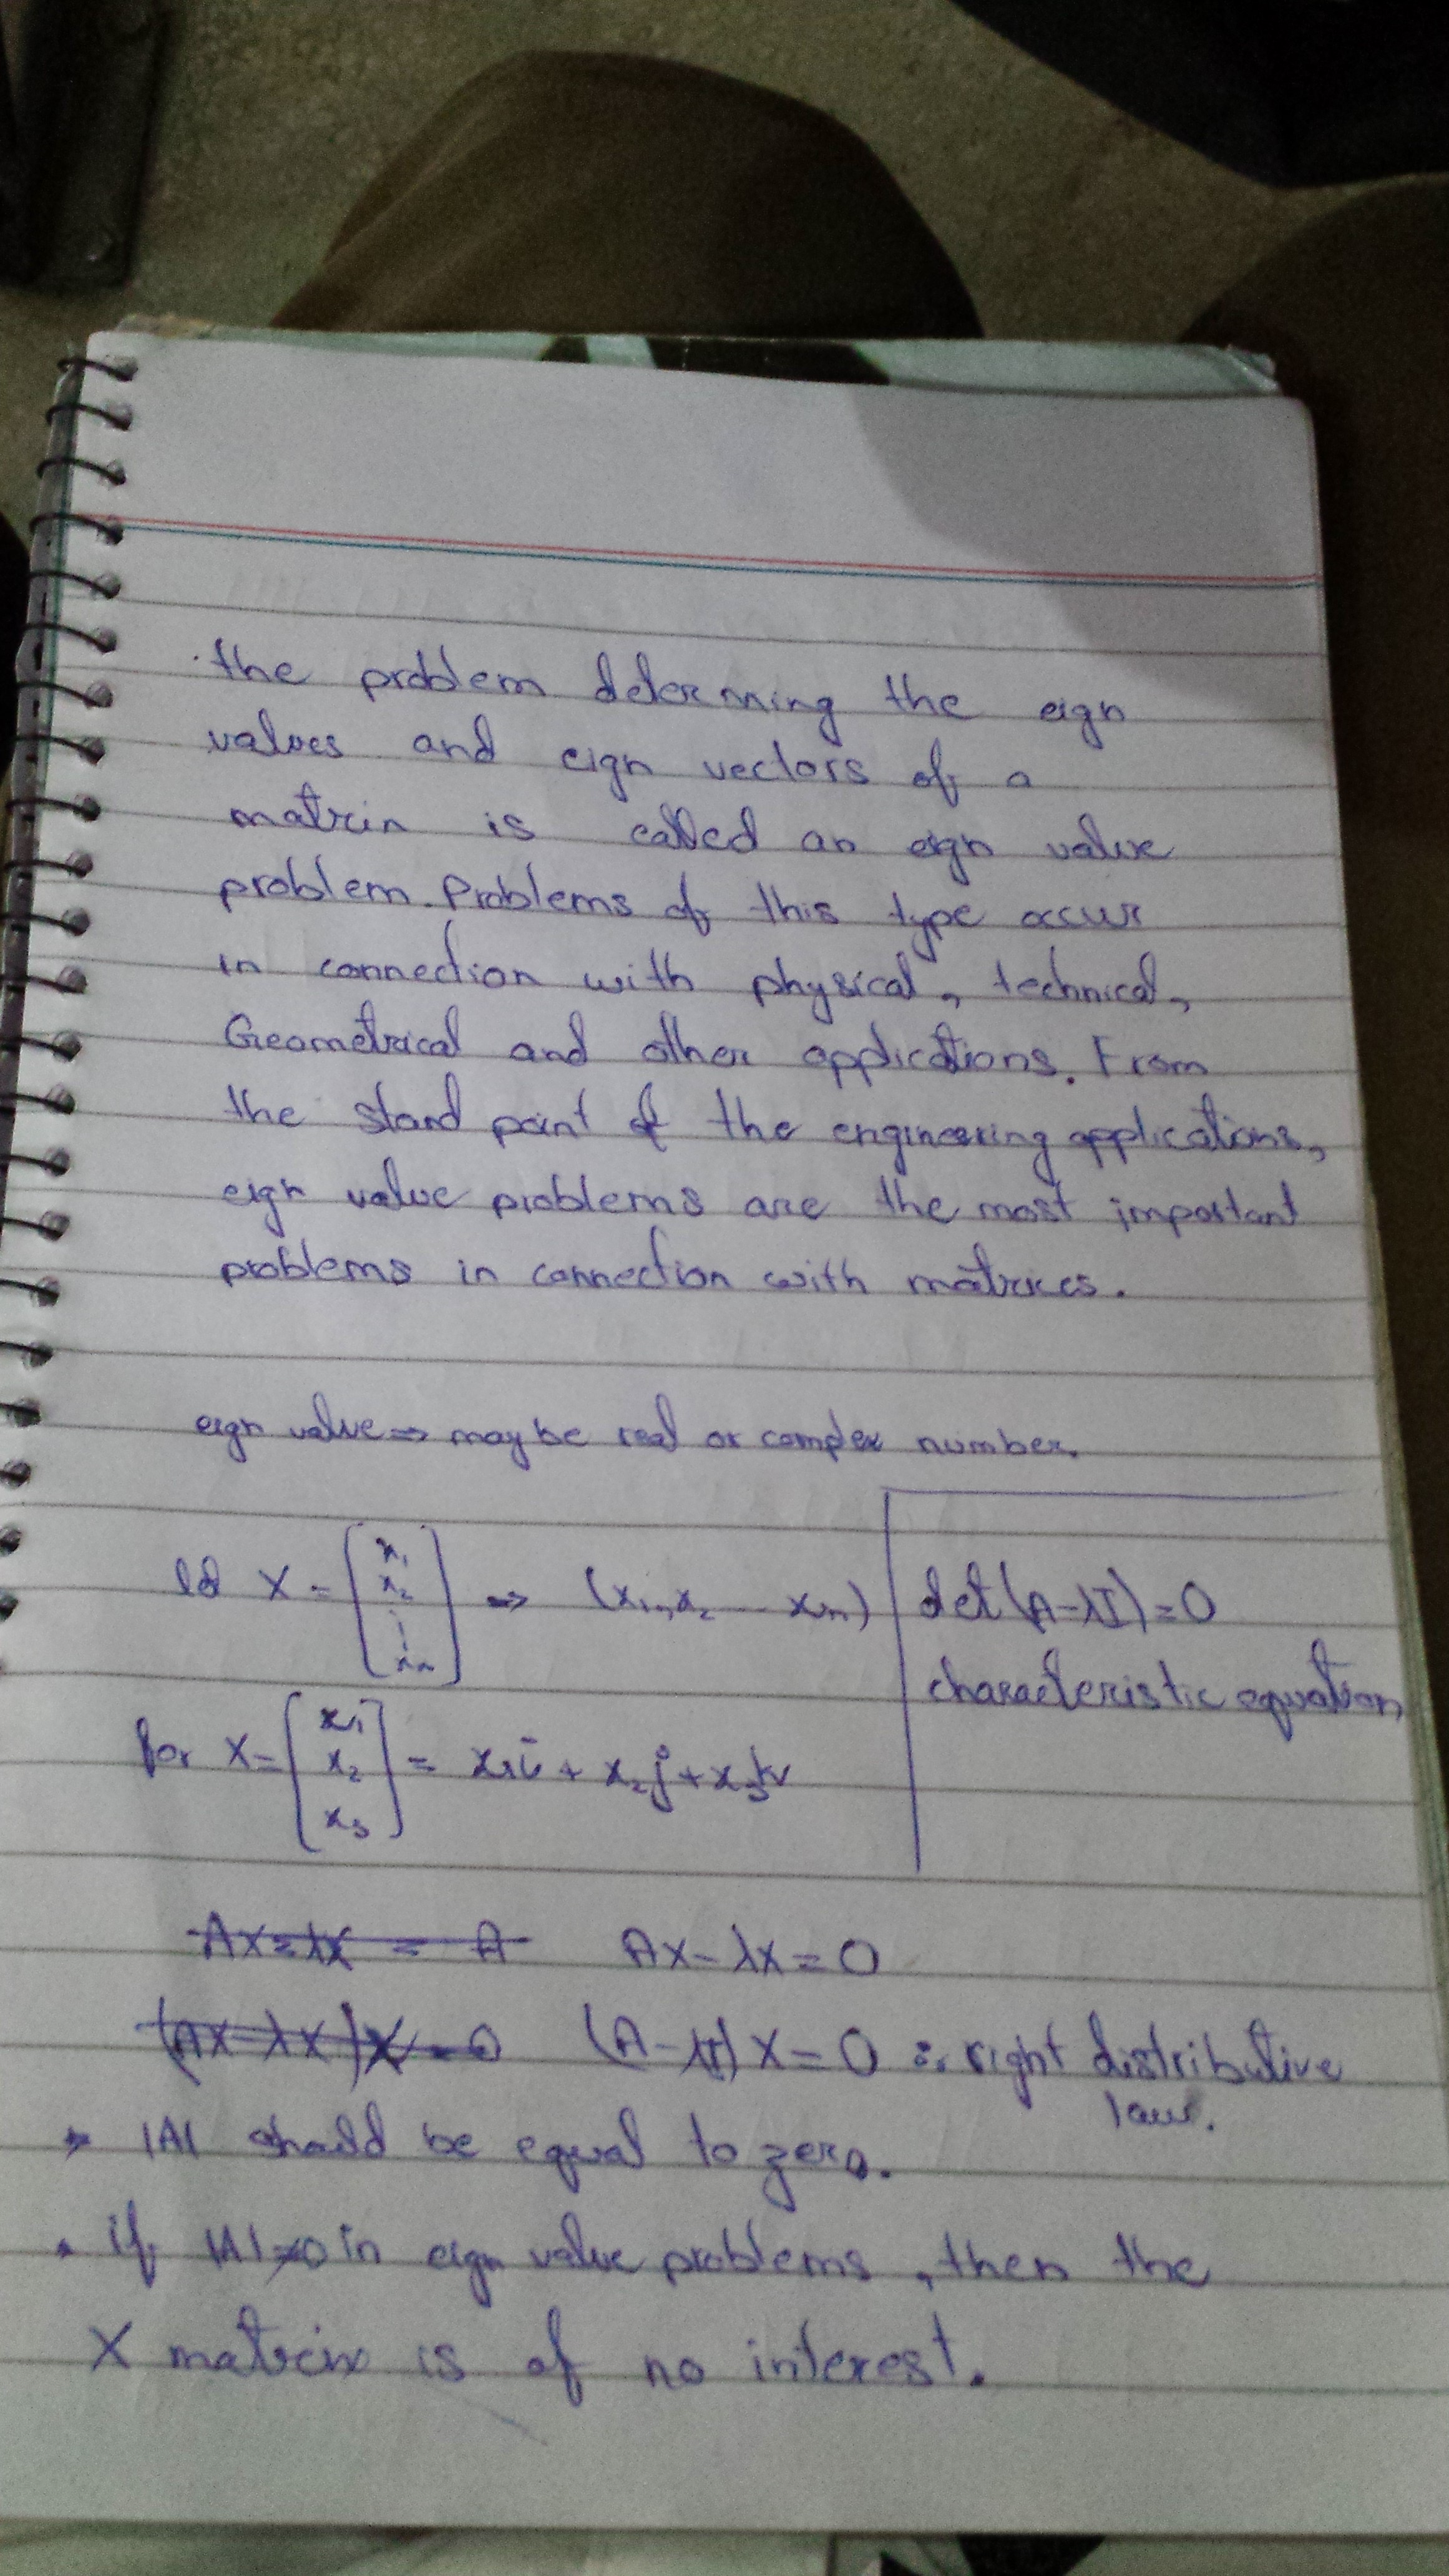 the problem determing the eign
values and eign vectors of a
matrix is called an eign value
problem. Problems of this type occur
in connection with physical, technical,
Geometrical and other applications. From
the stand point of the engineering applications,
eign value problems are the most important
problems in connection with matrices.
eign value => may be real or complex number.
let X = [x1 x2 ⋮ xn] => (x1, x2 --- xn)
det(A-λI)=0
characteristic equation
for X = [x1 x2 x3] = x1i + x2j + x3k
AX=λX = A AX-λX=0
(AX-λX)X=0 (A-λI)X=0 ∴ right distributive
law.
→ |A| should be equal to zero.
• if |A|≠0 in eign value problems, then the
X matrix is of no interest.